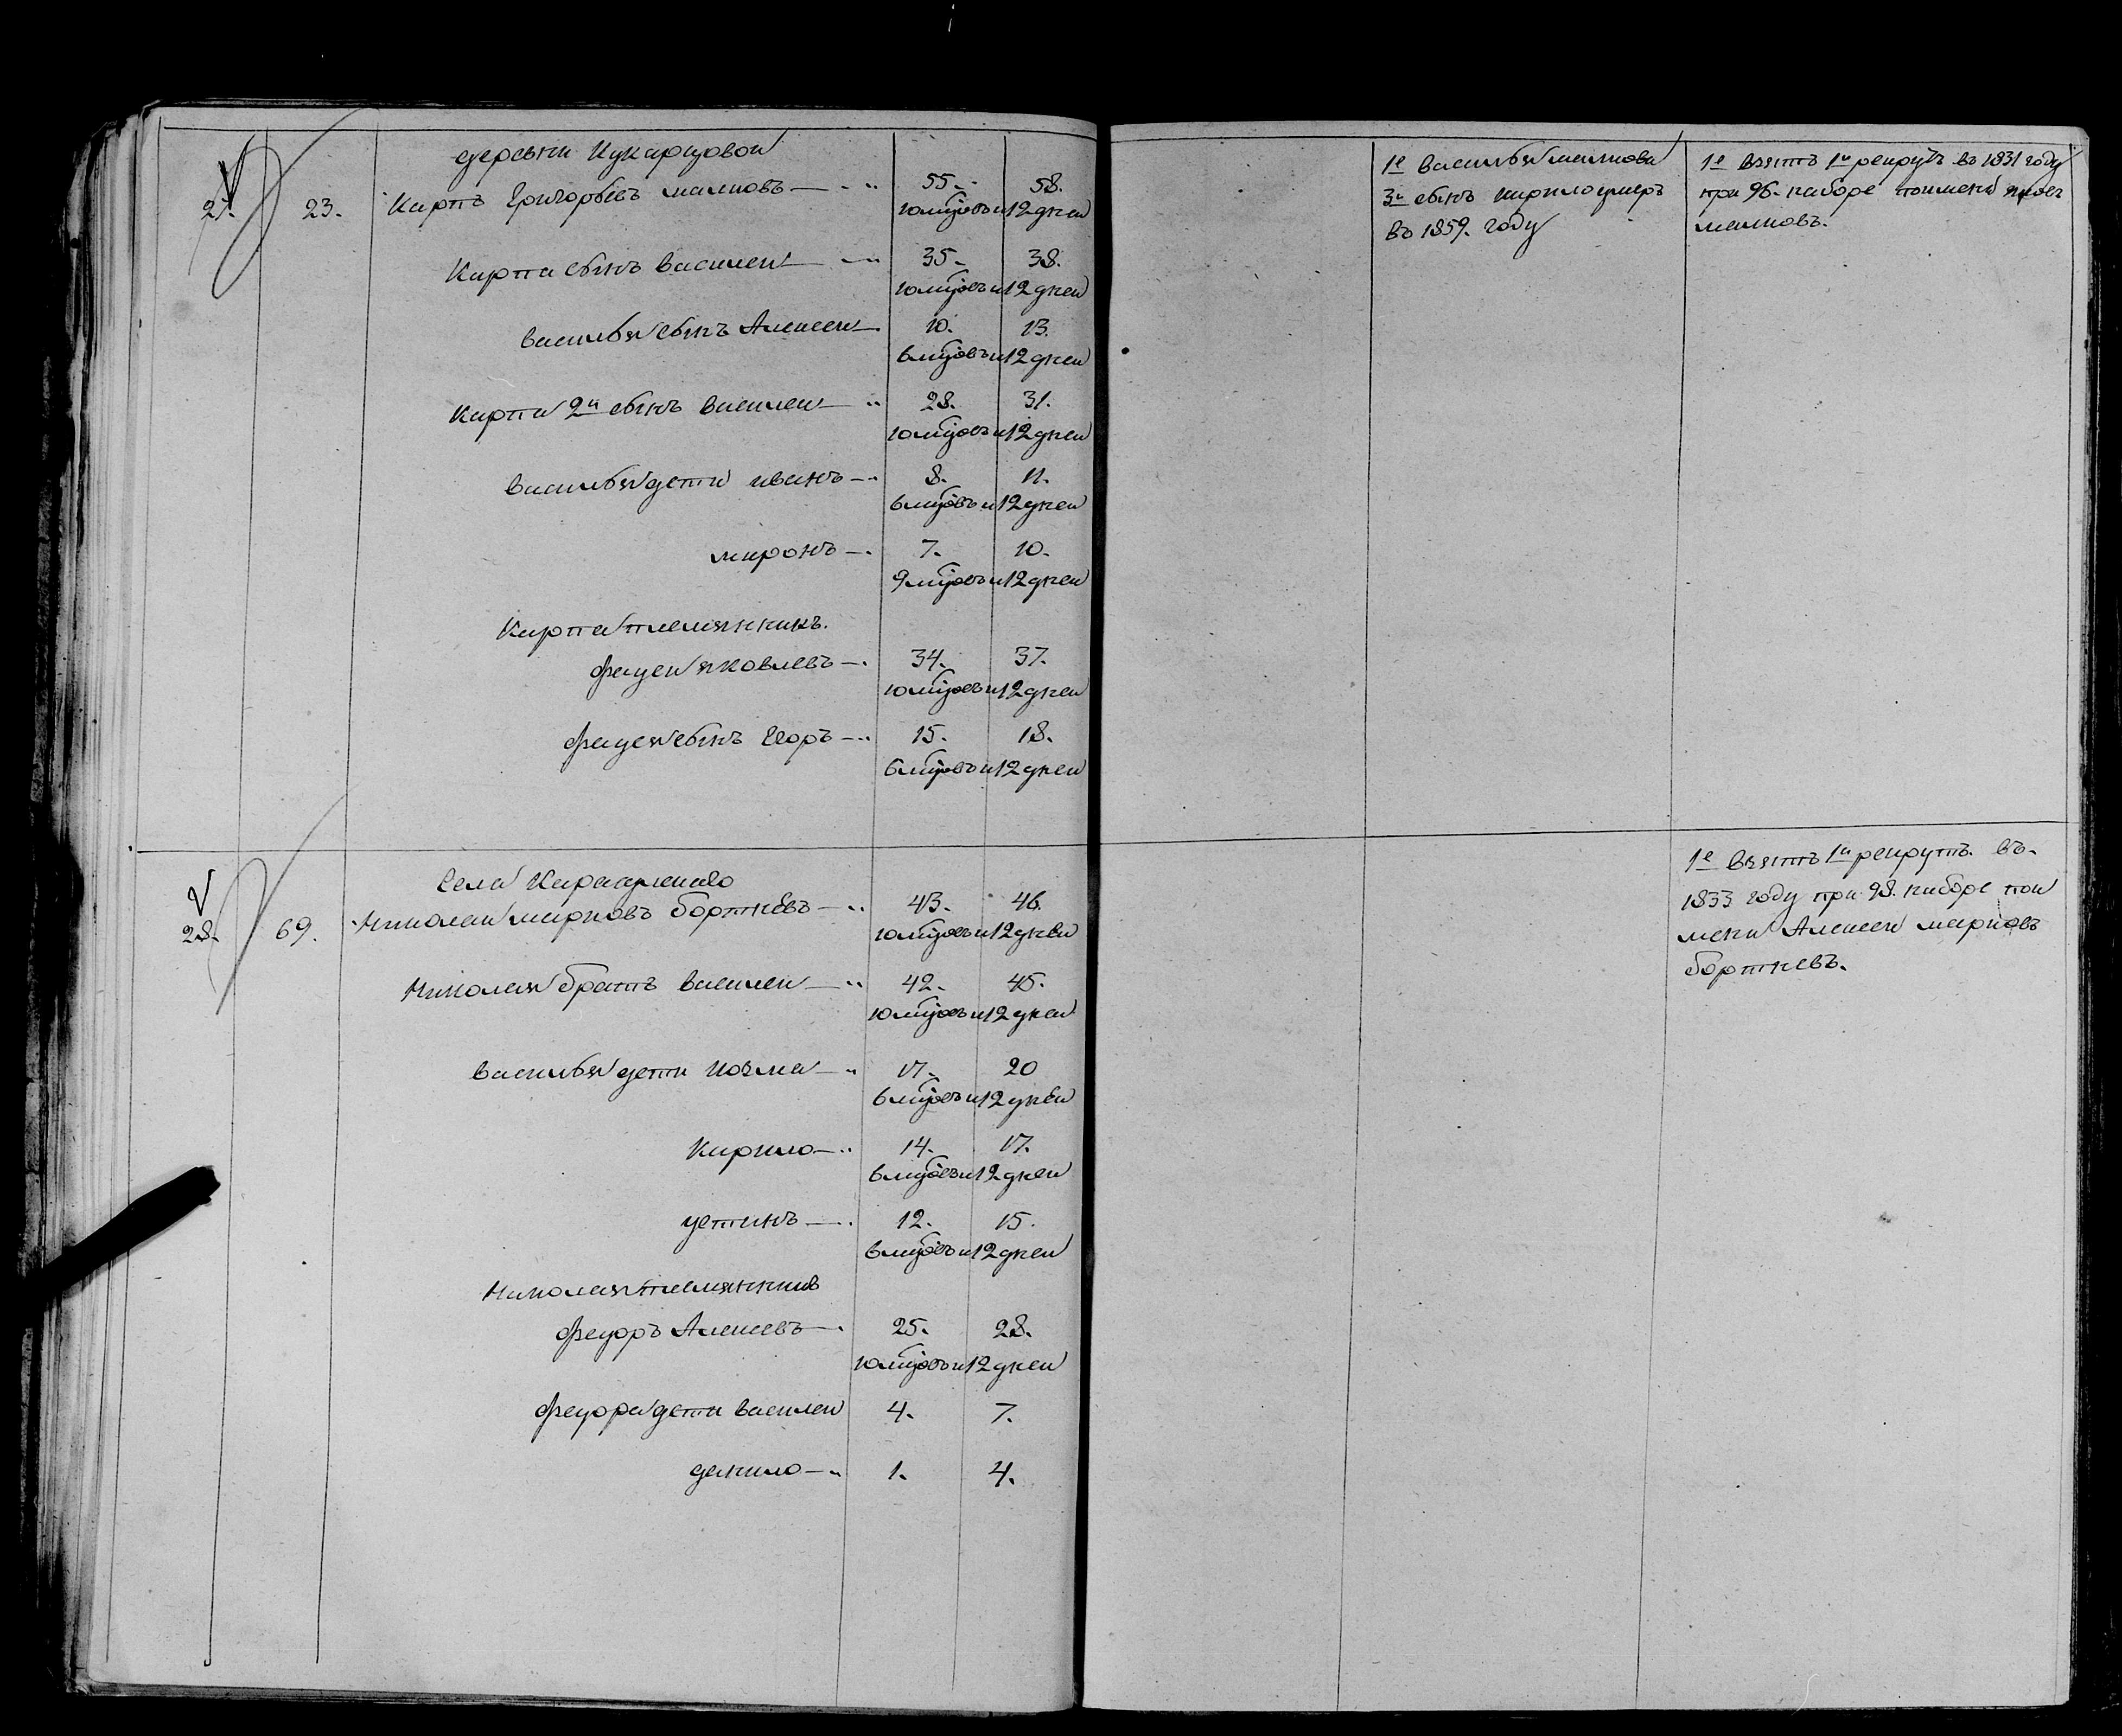 деревни Кукарцовой
27. 23. Карпъ Григорьевъ малковъ 55. 58.
10 мцовъ и 12 дней
Карпа сынъ василей 35. 38.
10 мцовъ и 12 дней
васильи сынъ Алексей 10. 13.
6 мцовъ и 12 дней
Карпа 2й сынъ василей 28. 31.
10 мцовъ и 12 дней
василья дети иванъ 8. 11.
6 мцовъ и 12 дней
миронъ 7. 10.
9 мцовъ и 12 дней
Карпа племянникъ.
фадей яковлевъ 34. 37.
10 мцовъ и 12 дней
фадея сынъ Егоръ 15. 18.
6 мцовъ и 12 дней
села
28. 69. Николай марковъ бортневъ 43. 46.
10 мцовъ и 12 дней
Николая братъ василей 42. 45.
10 мцовъ и 12 дней
василья дети козма 17. 20
6 мцовъ и 12 дней
Кирило 14. 17.
6 мцовъ и 12 дней
устинъ 12. 15.
6 мцовъ и 12 дней
Николая племянникъ
федоръ Алексевъ 25. 28.
10 мцовъ и 12 дней
федора дети василей 4. 7.
данило 1. 4.
1е василья малкова
3й сынъ кирило умеръ
въ 1859. году
1е взятъ 1й рекрутъ въ 1831 году
при 96. наборе поимени яковъ
малковъ.
1е взятъ 1й рекрутъ. въ.
1833 году при 98. наборе пои
мени Алексей марковъ
бортневъ.